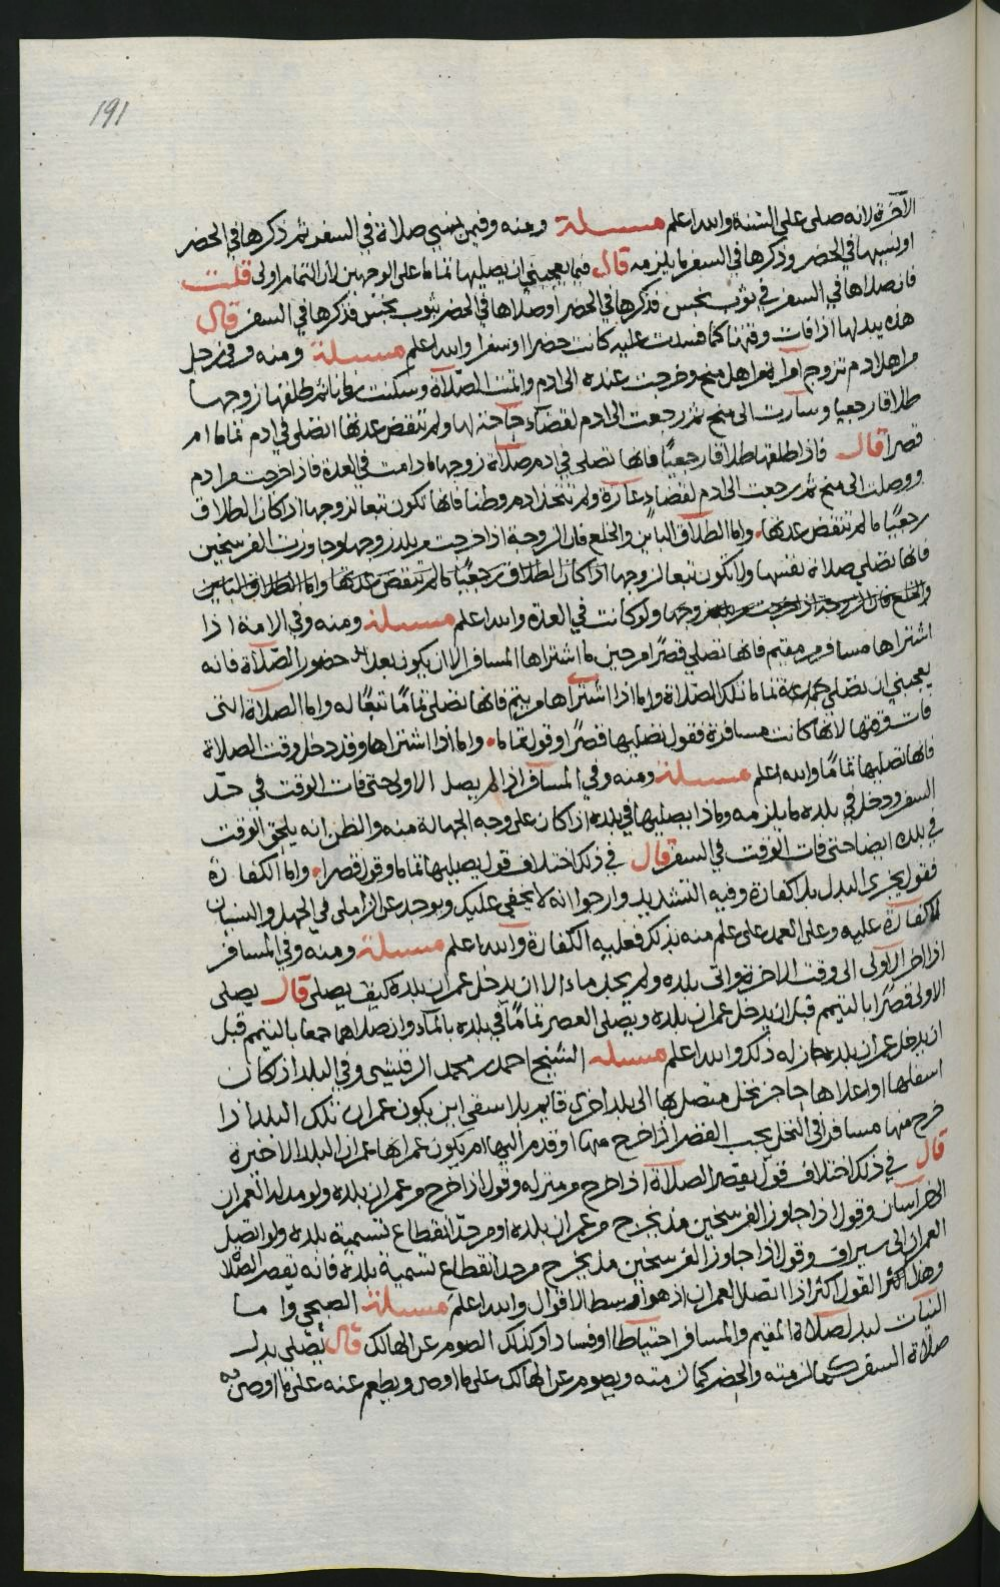 191
الآخرة لانه صلى على السنة والله اعلم مسئلة ومنه وفيمن نسي صلاة في السفر ثم ذكرها في الحضر
او نسيها في الحضر وذكرها في السفر ما يلزمه قال فيما يعجبني ان يصليها تماما على الوجهين لان التمام اولى قلت
فان صلاها في السفر في ثوب نجس فذكرها في الحضر او صلاها في الحضر بثوب نجس فذكرها في السفر قال
هذه يبدلها اذا فات وقتها كما فسدت عليه كانت حضرا او سفرا والله اعلم مسئلة ومنه وفي رجل
من اهل ادم تزوج امرأة من اهل منح وخرجت عنده الى ادم واتمت الصلاة وسكنت زمانا ثم طلقها زوجها
طلاقا رجعيا وسارت الى منح ثم رجعت الى ادم لقضاء حاجة لها ولم تنقض عدتها اتصلي في ادم تماما ام
قصرا قال فاذا طلقها طلاقا رجعيًا فانها تصلي في ادم صلاة زوجها ما دامت في العدة فاذا خرجت من ادم
ووصلت الى منح ثم رجعت الى ادم لقضاء ولم تتخذ ادم وطنا فانها تكون تبعا لزوجها اذا كان الطلاق
رجعيًا ما لم تنقض عدتها، واما الطلاق الباين والخلع فان الزوجة اذا خرجت من بلد زوجها وجاوزت الفرسخين
فانها تصلي صلاة نفسها ولا تكون تبعا لزوجها اذا كان الطلاق رجعيًا ما لم تنقض عدتها واما الطلاق الباين
والخلع فان الزوجة اذا خرجت من بلد زوجها ولو كانت في العدة والله اعلم مسئلة ومنه وفي الامة اذا
اشتراها مسافر من مقيم فانها تصلي قصرًا من حين ما اشتراها المسافر الا ان يكون بعد حضور الصلاة فانه
يعجبني ان تصلي تماما تلك الصلاة واما اذا اشتراها من يتم فانها تصلي تمامًا تبعًا له واما الصلاة التي
فات وقتها لانها كانت مسافرة فقول تصليها قصرًا وقول تماما، واما اذا اشتراها وقد دخل وقت الصلاة
فانها تصليها تمامًا والله اعلم مسئلة ومنه وفي المسافر اذا لم يصل الاولى حتى فات الوقت في حد
السفر ودخل في بلده ما يلزمه وماذا يصليها في بلده اذ كان على وجه الجهالة منه والظن انه يلحق الوقت
في بلده ايضا حتى فات الوقت في السفر قال في ذلك اختلاف قول يصليها تماما وقول قصرا، واما الكفارة
فقول يجزي البدل بلا كفارة وفيه التشديد وارجوا انه لا يخفي عليك ويوجد عن الزاملي في الجهل والنسيان
لا كفارة عليه وعلى العمد على علم منه بذلك فعليه الكفارة والله اعلم مسئلة ومنه وفي المسافر
اذا اخر الاولى الى وقت الاخرة واتى بلده ولم يجد ماء الا ان يدخل عمران بلده كيف يصلي قال يصلي
الاولى قصرًا بالتيمم قبل ان يدخل عمران بلده ويصلي العصر تمامًا في بلده بالماء وان صلاهما جمعا بالتيمم قبل
ان يدخل عمران بلده جاز له ذلك والله اعلم مسئلة الشيخ احمد بن محمد الرقيشي وفي البلد اذا كان
اسفلها او اعلاها حاجز نخل متصل بها الى بلد اخرى قايم بلا سقي اين يكون عمران تلك البلد اذا
خرج منها مسافر افي النخل يجب القصر اذا خرج منها او قدم اليها ام يكون عمرانها عمران البلد الاخيرة
قال في ذلك اختلاف قول يقصر الصلاة اذا خرج من منزله وقول اذا خرج من عمران بلده ولو مد له العمران
الى خراسان وقول اذا جاوز الفرسخين مذ يخرج من عمران بلده او من حد انقطاع تسمية بلده ولو اتصل
العمران الى سيراف وقول اذا جاوز الفرسخين مذ يخرج من حد انقطاع تسمية بلده فانه يقصر الصلاة
وهذا اكثر القول اكثر اذا اتصل العمران اذ هو اوسط الاقوال والله اعلم مسئلة الصبحي وا ما
النيات لبدل صلاة المقيم والمسافر احتياطا او فسادا وكذلك الصوم عن الهالك قال يصلى بدل
صلاة السفر كما لزمته والحضر كما لزمته ويصوم عن الهالك على ما اوصى ويطعم عنه على ما اوصى به